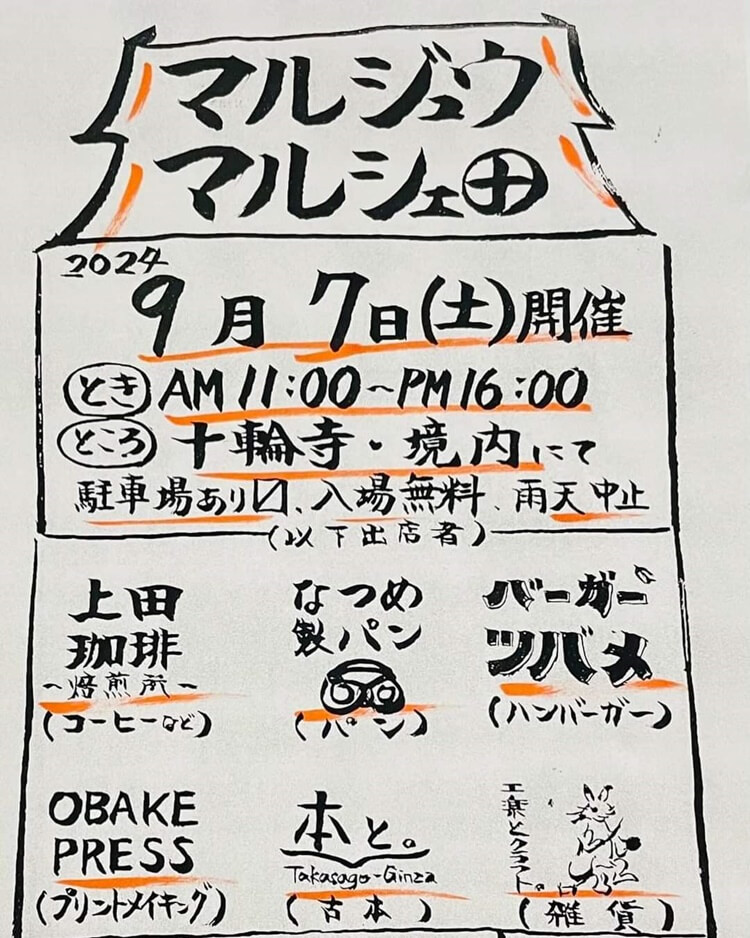 マルジュウ
マルシェ㊉
2024
9月7日(土)開催
とき AM11:00~PM16:00
ところ 十輪寺・境内にて
駐車場あり〼、入場無料、雨天中止
(以下出店者)
上田
珈琲
~焙煎所~
(コーヒーなど)
なつめ
製パン
(パン)
バーガー
ツバメ
(ハンバーガー)
OBAKE
PRESS
(プリントメイキング)
本と。
Takasago-Ginza
(古本)
工楽とクラフト。
(雑貨)